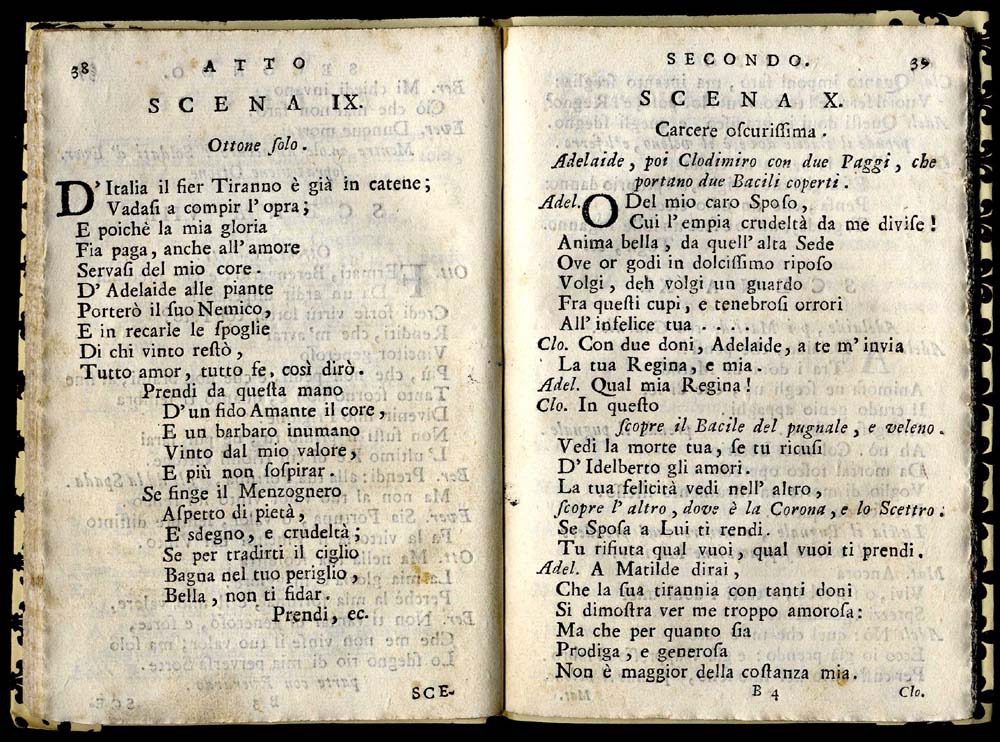 38 ATTO
SCENA IX.
Ottone ſolo.
D'Italia il fier Tiranno è già in catene;
Vadaſi a compir l'opra;
E poichè la mia gloria
Fia paga, anche all'amore
Servaſi del mio core.
D'Adelaide alle piante
Porterò il ſuo Nemico,
E in recarle le ſpoglie
Di chi vinto reſtò,
Tutto amor, tutto fe, così dirò.
Prendi da queſta mano
D'un fido Amante il core,
E un barbaro inumano
Vinto dal mio valore,
E più non ſoſpirar.
Se finge il Menzognero
Aſpetto di pietà,
E' sdegno, e crudeltà;
Se per tradirti il ciglio
Bagna nel tuo periglio,
Bella, non ti fidar.
Prendi, ec.
SCE-
SECONDO. 39
SCENA X.
Carcere oſcuriſſima.
Adelaide, poi Clodimiro con due Paggi, che
portano due Bacili coperti.
Adel. O Del mio caro Spoſo,
Cui l'empia crudeltà da me diviſe!
Anima bella, da quell'alta Sede
Ove or godi in dolciſſimo ripoſo
Volgi, deh volgi un guardo
Fra queſti cupi, e tenebroſi orrori
All'infelice tua . . . .
Clo. Con due doni, Adelaide, a te m'invia
La tua Regina, e mia.
Adel. Qual mia Regina!
Clo. In queſto
ſcopre il Bacile del pugnale, e veleno.
Vedi la morte tua, ſe tu ricuſi
D'Idelberto gli amori.
La tua felicità vedi nell'altro,
ſcopre l'altro, dove è la Corona, e lo Scettro.
Se Spoſa a Lui ti rendi.
Tu rifiuta qual vuoi, qual vuoi ti prendi.
Adel. A Matilde dirai,
Che la ſua tirannia con tanti doni
Si dimoſtra ver me troppo amoroſa:
Ma che per quanto ſia
Prodiga, e generoſa
Non è maggior della coſtanza mia.
B 4 Clo.